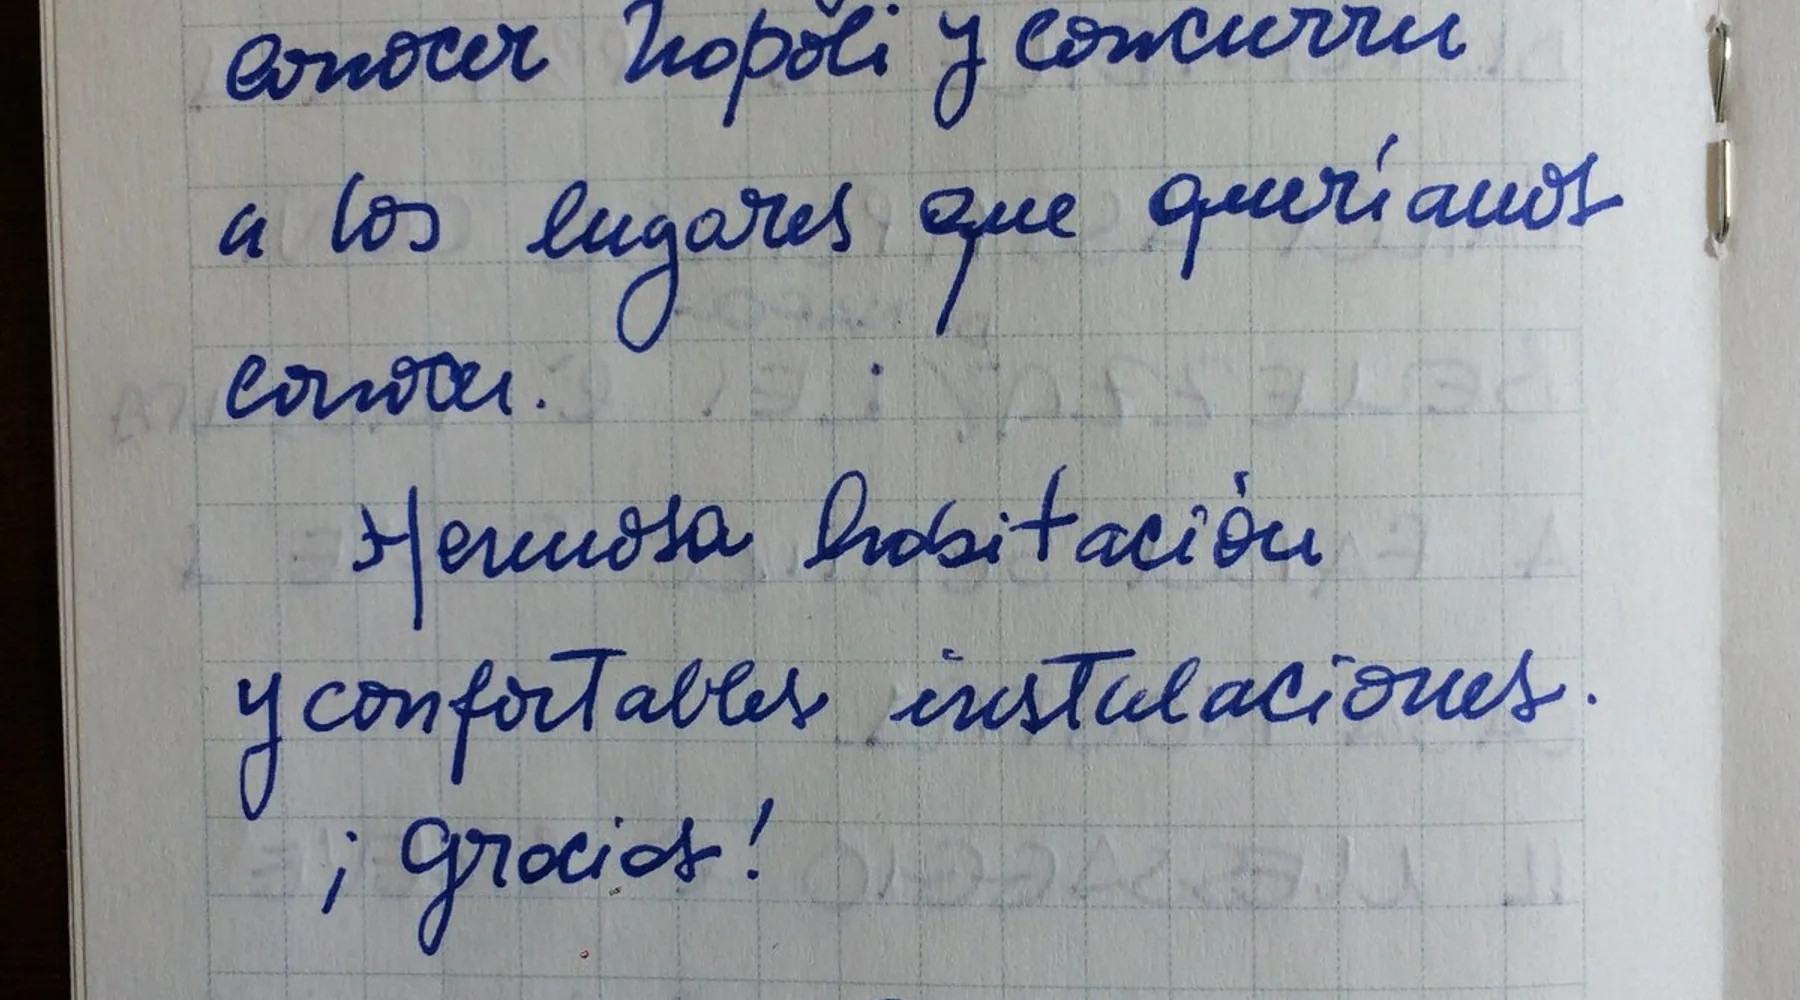 conocer Nápoli y concurrir
a los lugares que queríamos
conocer.
Hermosa habitación
y confortables instalaciones.
¡Gracias!